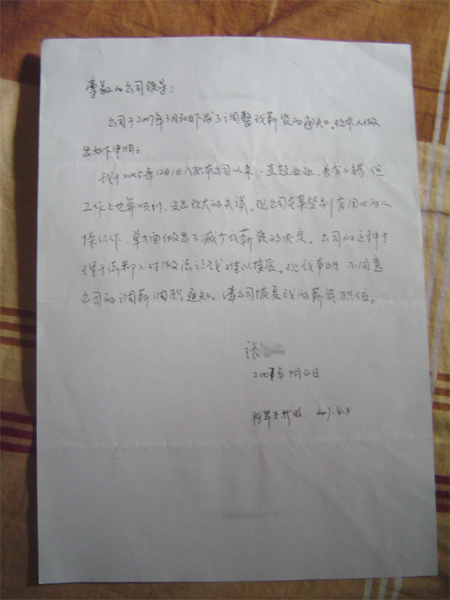 尊敬的公司领导：
公司于2007年3月30日下发了调整我薪资的通知。现本人做
出如下申明：
我于2005年12月1日入职本公司以来，一直兢兢业业，虽有小错，但
工作上也算顺利，没出过大的失误。现公司在某些别有用心的人
操作下，单方面做出了减少我薪资的决定。公司的这种于
理于法都不对做法让我难以接受。现我申明不同意
公司的调薪调职通知。请公司恢复我的薪资职位。
张
2007年4月4日
2007.4.4